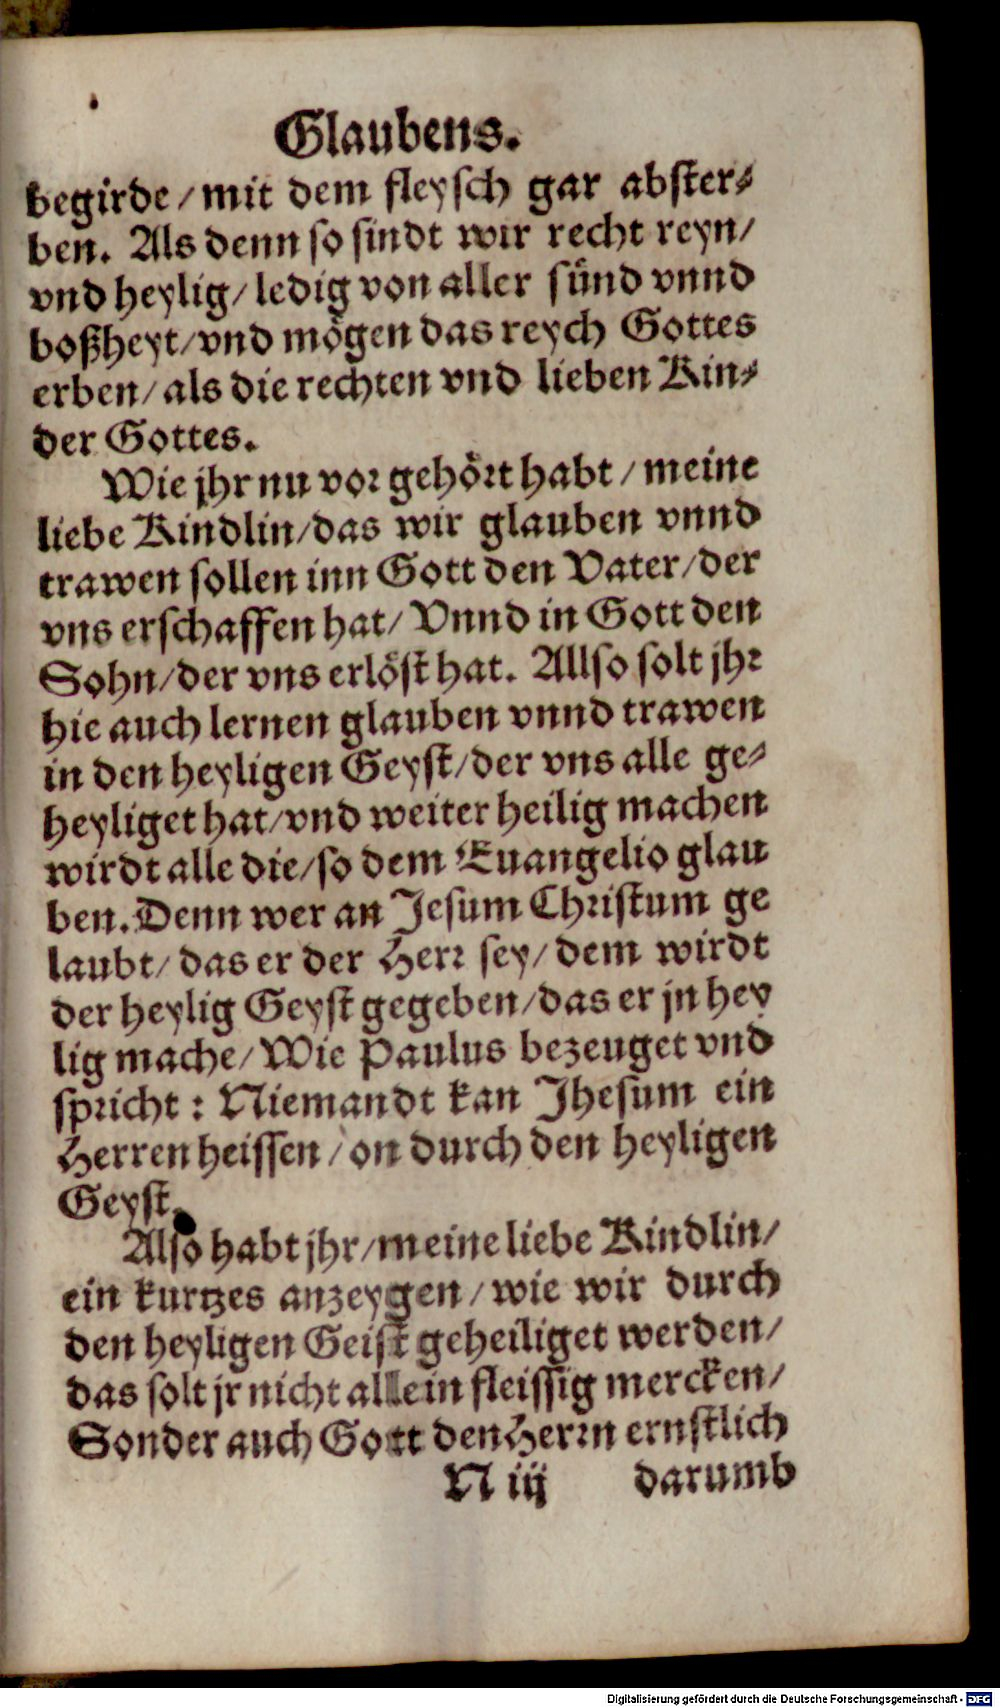 Glaubens.
begirde / mit dem fleysch gar abster⸗
ben. Als denn so sindt wir recht reyn /
vnd heylig / ledig von aller sünd vnnd
boßheyt / vnd mögen das reych Gottes
erben / als die rechten vnd lieben Kin⸗
der Gottes.
Wie jhr nu vor gehört habt / meine
liebe Kindlin / das wir glauben vnnd
trawen sollen inn Gott den Vater / der
vns erschaffen hat / Vnnd in Gott den
Sohn / der vns erlöst hat. Allso solt jhr
hie auch lernen glauben vnnd trawen
in den heyligen Geyst / der vns alle ge⸗
heyliget hat / vnd weiter heilig machen
wirdt alle die / so dem Euangelio glau
ben. Denn wer an Jesum Christum ge
laubt / das er der Herr sey / dem wirdt
der heylig Geyst gegeben / das er jn hey
lig mache / Wie Paulus bezeuget vnd
spricht : Niemandt kan Jhesum ein
Herren heissen / on durch den heyligen
Geyst.
Also habt jhr / meine liebe Kindlin /
ein kurtzes anzeygen / wie wir durch
den heyligen Geist geheiliget werden /
das solt jr nicht allein fleissig mercken /
Sonder auch Gott den Herrn ernstlich
N iij darumb
Digitalisierung gefördert durch die Deutsche Forschungsgemeinschaft - DFG